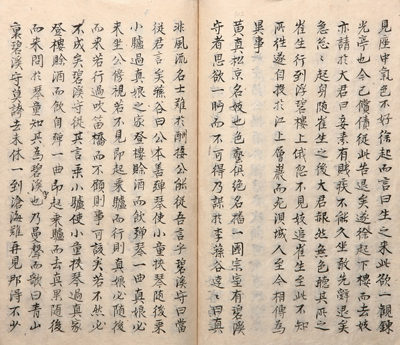 見座中氣色不好徐起而言曰生之來此欲一觀錬
光亭也今已償債從此告退矣遂徐起下樓而去妓
亦請於大君曰妾素有賤疾不能久坐敢先辭退矣
急急起身隨崔生之後大君赧然無色聽其所之
崔生行到浮碧樓上俄忽不見妓追崔生至此不知
所往遂自投於江上層巖而死浿城人至今相傳爲
異事
黃眞松京名妓也色藝俱絶名播一國宗室有碧溪
守者思欲一眄而不可得乃謀於李蓀谷達曰眞
非風流名士難於酬接公能從吾言乎碧溪守曰當
從君言矣蓀谷曰公本善彈琴使小童挾琴隨後乘
小驢過眞娘之家登樓賖酒而飮彈琴一曲眞娘必
來坐公傍視若不見卽起乘驢而行則眞娘必隨後
而來若行過吹笛橋而不顧則事可諧矣若不然必
不成矣碧溪守從其言乘小驢使小童挾琴過眞家
登樓賖酒而飮自彈一曲卽起乘驢而去眞果隨後
而來問於琴童知其爲碧溪也乃曼聲而歌曰靑山
裏碧溪守莫誇去來休一到滄海難再見那得不少